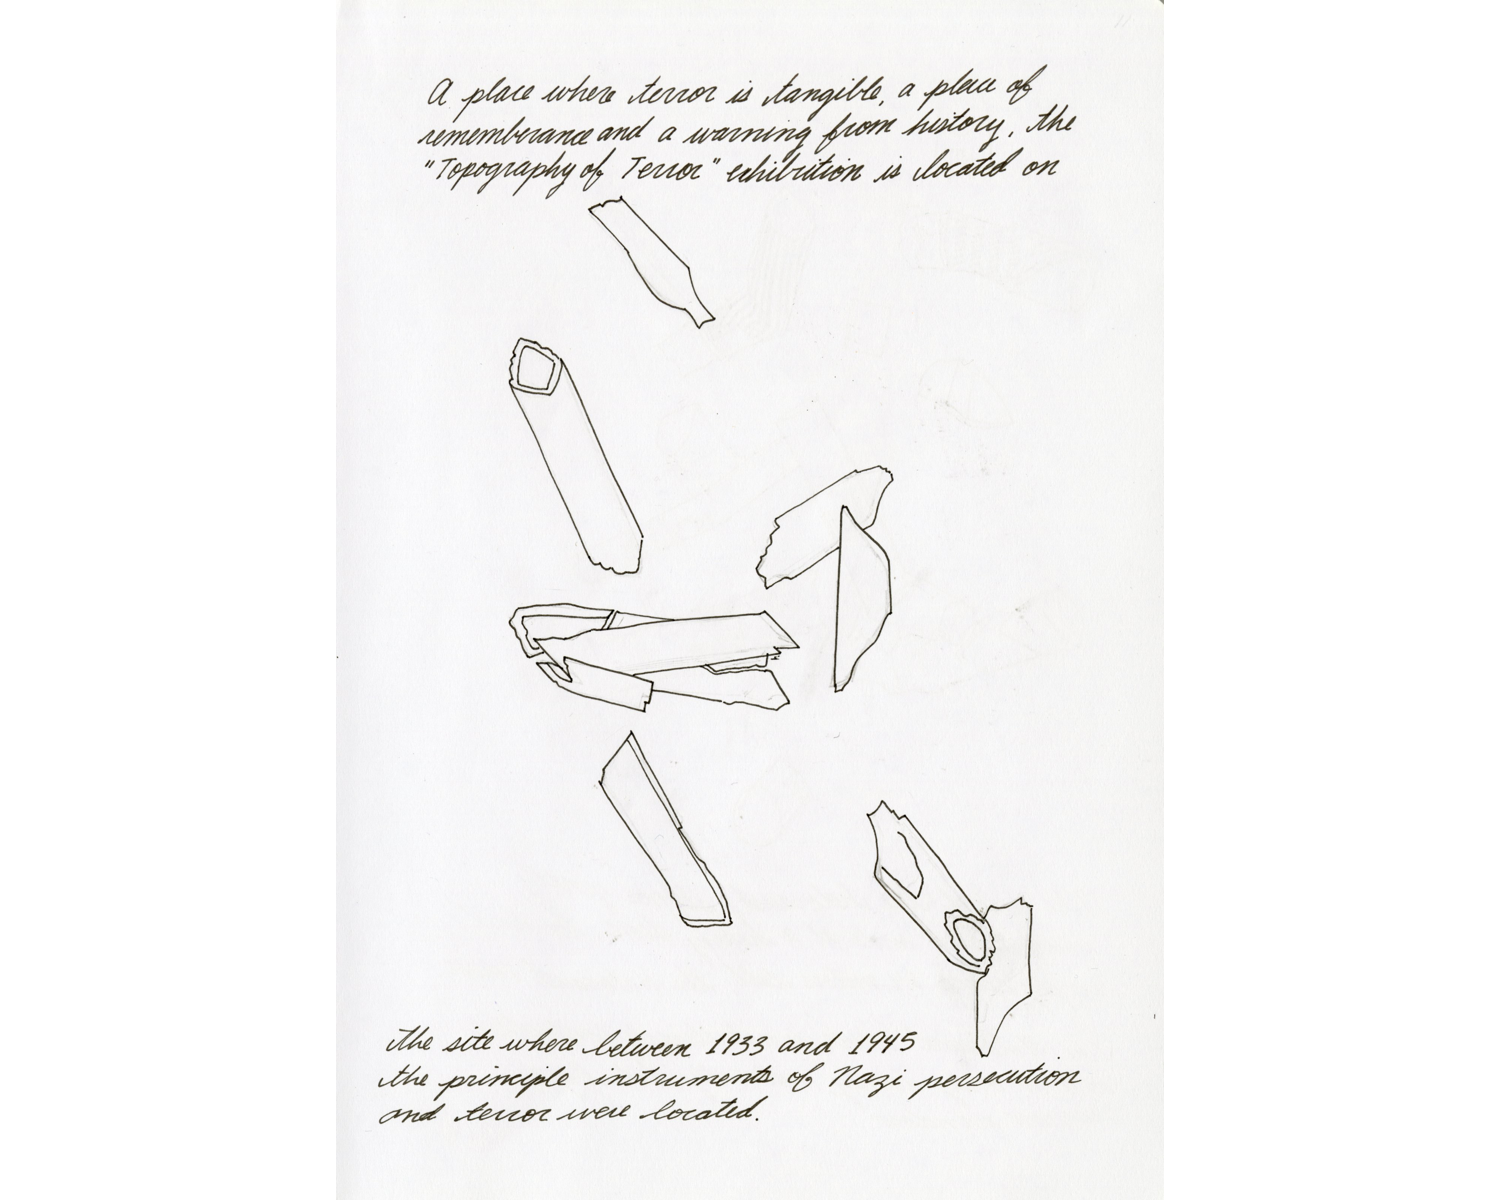 A place where terror is tangible, a place of
rememberance and a warning from history, the
"Topography of Terror" exhibition is located on
the site where between 1933 and 1945
the principle instruments of Nazi persecution
and terror were located.